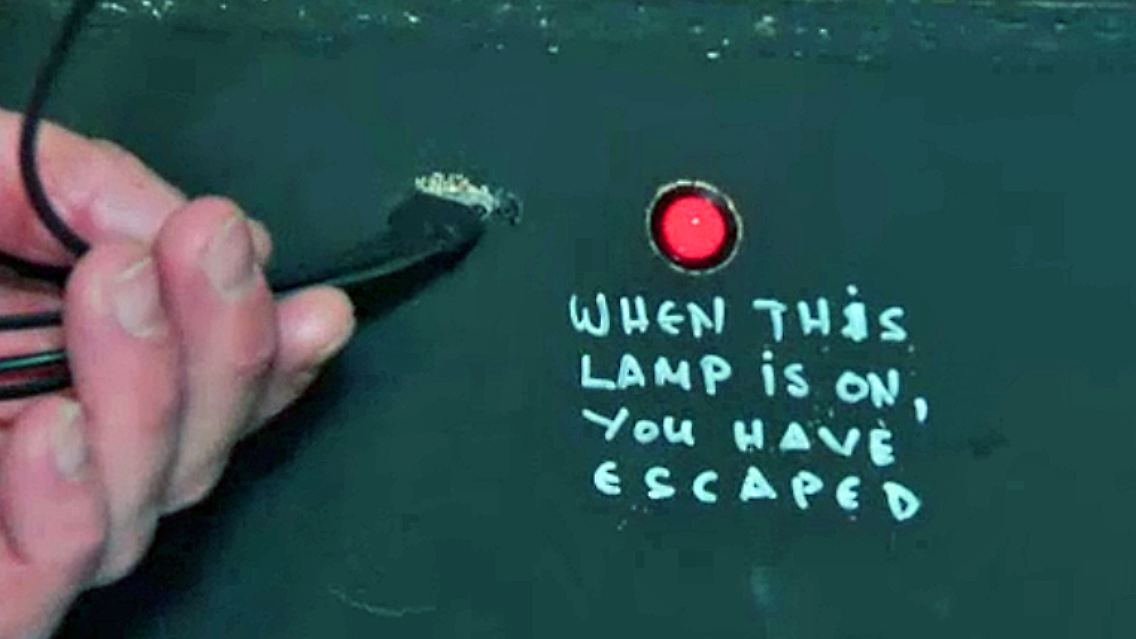 WHEN THiS
LAMP iS ON,
YOU HAVE
ESCAPED